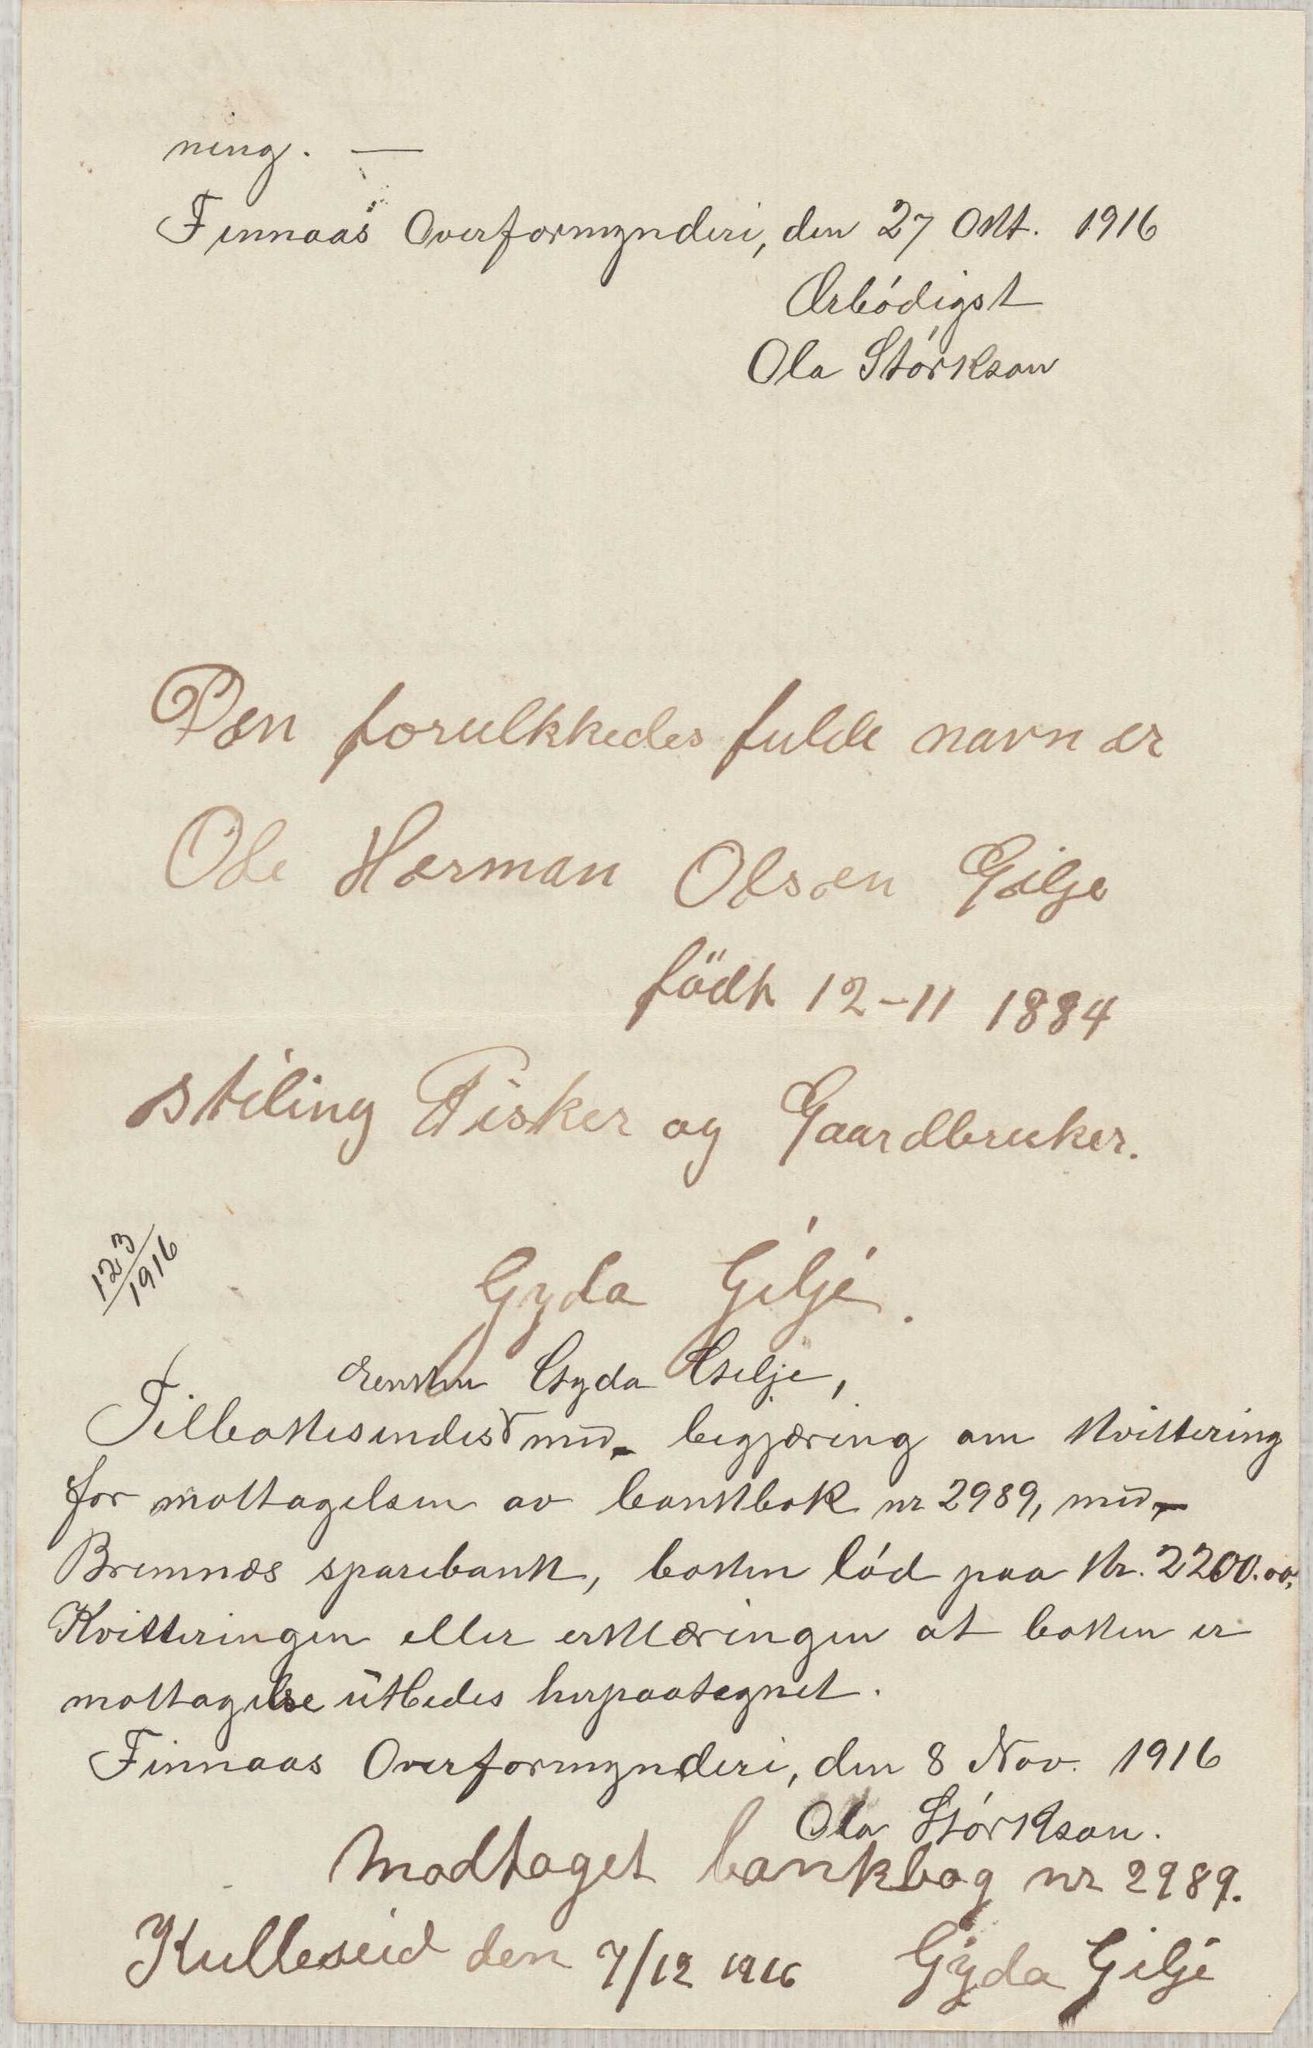 ning. —
Finnaas Overformynderi, den 27 Okt. 1916
Ærbödigst
Ola Störkson
Den forulkkedes fulde navn er
Ole Herman Olsen Gilje
födt 12-11 1884
stiling Fisker og Gaardbruker.
123/1916
Gyda Gilje.
Enken Gyda Gilje,
Tilbakesendes med begjæring om kvittering
for mottagelsen av bankbok nr 2989, med
Bremnes sparebank, boken löd paa kr. 2200.00,
Kvitteringen eller erklæringen at boken er
mottagelse utbedes herpaategnet.
Finnaas Overformynderi, den 8 Nov. 1916
Ola Störkson.
Modtaget bankbog nr 2989.
Kulleseid den 7/12 1916 Gyda Gilje